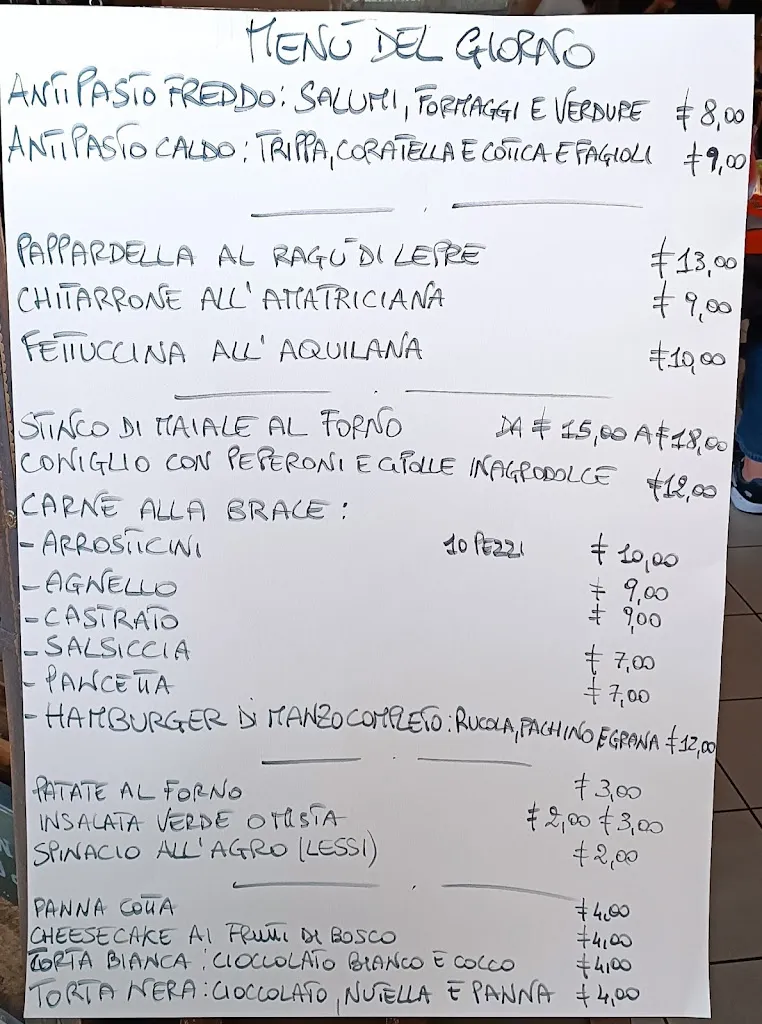 MENÙ DEL GIORNO
ANTIPASTO FREDDO: SALUMI, FORMAGGI E VERDURE € 8,00
ANTIPASTO CALDO: TRIPPA, CORATELLA E COTICA E FAGIOLI € 9,00
PAPPARDELLA AL RAGÙ DI LEPRE € 13,00
CHITARRONE ALL'AMATRICIANA € 9,00
FETTUCCINA ALL'AQUILANA €10,00
STINCO DI MAIALE AL FORNO DA € 15,00 A €18,00
CONIGLIO CON PEPERONI E CIPOLLE IN AGRODOLCE €12,00
CARNE ALLA BRACE:
- ARROSTICINI 10 PEZZI € 10,00
- AGNELLO € 9,00
- CASTRATO € 9,00
- SALSICCIA € 7,00
- PANCETTA € 7,00
- HAMBURGER DI MANZO COMPLETO: RUCOLA, PACHINO E GRANA €12,00
PATATE AL FORNO € 3,00
INSALATA VERDE O MISTA € 2,00 € 3,00
SPINACIO ALL'AGRO (LESSI) € 2,00
PANNA COTTA € 4,00
CHEESECAKE AI FRUTTI DI BOSCO € 4,00
TORTA BIANCA: CIOCCOLATO BIANCO E COCCO € 4,00
TORTA NERA: CIOCCOLATO, NUTELLA E PANNA € 4,00